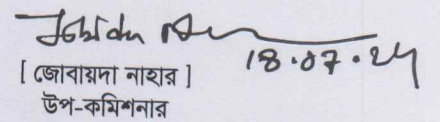 18.07.24
[ জোবায়দা নাহার ]
উপ-কমিশনার